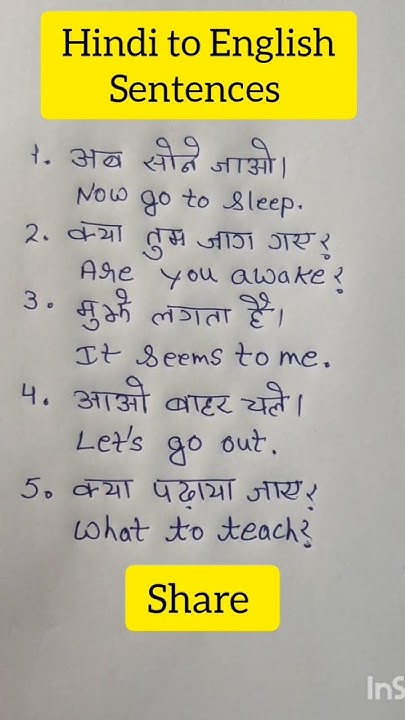 Hindi to English
Sentences
1. अब सोने जाओ।
Now go to sleep.
2. क्या तुम जाग गए?
Are you awake?
3. मुझे लगता है।
It seems to me.
4. आओ बाहर चले।
Let's go out.
5. क्या पढ़ाया जाए?
What to teach?
Share
InS